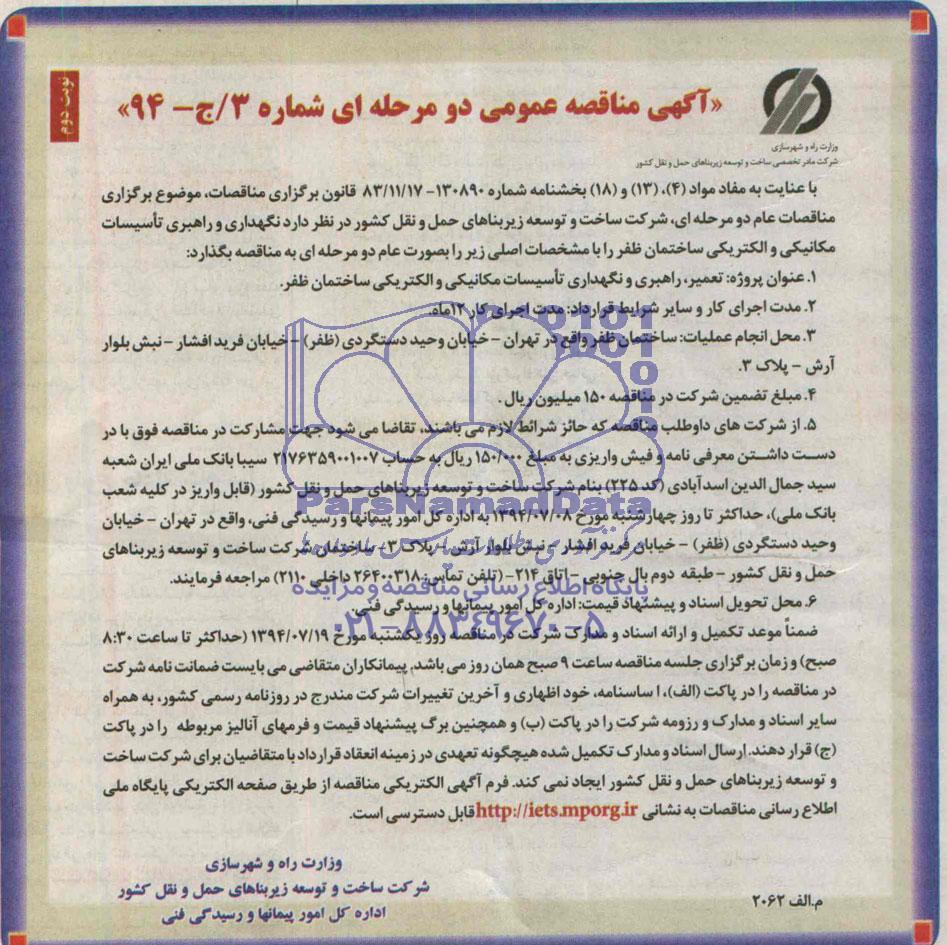 نوبت دوم
«آگهی مناقصه عمومی دو مرحله ای شماره ۳/ج- ۹۴»
وزارت راه و شهرسازی
شرکت مادر تخصصی ساخت و توسعه زیربناهای حمل و نقل کشور
با عنایت به مفاد مواد (۴)، (۱۳) و (۱۸) بخشنامه شماره ۱۳۰۸۹۰- ۸۳/۱۱/۱۷ قانون برگزاری مناقصات، موضوع برگزاری
مناقصات عام دو مرحله ای، شرکت ساخت و توسعه زیربناهای حمل و نقل کشور در نظر دارد نگهداری و راهبری تأسیسات
مکانیکی و الکتریکی ساختمان ظفر را با مشخصات اصلی زیر را بصورت عام دو مرحله ای به مناقصه بگذارد:
۱. عنوان پروژه: تعمیر، راهبری و نگهداری تأسیسات مکانیکی و الکتریکی ساختمان ظفر.
۲. مدت اجرای کار و سایر شرایط قرارداد: مدت اجرای کار ۱۲ماه.
۳. محل انجام عملیات: ساختمان ظفر واقع در تهران - خیابان وحید دستگردی (ظفر) - خیابان فرید افشار - نبش بلوار
آرش - پلاک ۳.
۴. مبلغ تضمین شرکت در مناقصه ۱۵۰ میلیون ریال.
۵. از شرکت های داوطلب مناقصه که حائز شرائط لازم می باشند، تقاضا می شود جهت مشارکت در مناقصه فوق با در
دست داشتن معرفی نامه و فیش واریزی به مبلغ ۱۵۰/۰۰۰ ریال به حساب ۲۱۷۶۳۵۹۰۰۱۰۰۷ سیبا بانک ملی ایران شعبه
سید جمال الدین اسدآبادی (کد ۲۲۵) بنام شرکت ساخت و توسعه زیربناهای حمل و نقل کشور (قابل واریز در کلیه شعب
بانک ملی)، حداکثر تا روز چهارشنبه مورخ ۱۳۹۴/۰۷/۰۸ به اداره کل امور پیمانها و رسیدگی فنی، واقع در تهران - خیابان
وحید دستگردی (ظفر) - خیابان فرید افشار - نبش بلوار آرش - پلاک ۳- ساختمان شرکت ساخت و توسعه زیربناهای
حمل و نقل کشور - طبقه دوم بال جنوبی - اتاق ۲۱۴- (تلفن تماس: ۲۶۴۰۰۳۱۸ داخلی ۲۱۱۰) مراجعه فرمایند.
۶. محل تحویل اسناد و پیشنهاد قیمت: اداره کل امور پیمانها و رسیدگی فنی.
ضمناً موعد تکمیل و ارائه اسناد و مدارک شرکت در مناقصه روز یکشنبه مورخ ۱۳۹۴/۰۷/۱۹ (حداکثر تا ساعت ۸:۳۰
صبح) و زمان برگزاری جلسه مناقصه ساعت ۹ صبح همان روز می باشد. پیمانکاران متقاضی می بایست ضمانت نامه شرکت
در مناقصه را در پاکت (الف)، ا ساسنامه، خود اظهاری و آخرین تغییرات شرکت مندرج در روزنامه رسمی کشور، به همراه
سایر اسناد و مدارک و رزومه شرکت را در پاکت (ب) و همچنین برگ پیشنهاد قیمت و فرمهای آنالیز مربوطه را در پاکت
(ج) قرار دهند. ارسال اسناد و مدارک تکمیل شده هیچگونه تعهدی در زمینه انعقاد قرارداد با متقاضیان برای شرکت ساخت
و توسعه زیربناهای حمل و نقل کشور ایجاد نمی کند. فرم آگهی الکتریکی مناقصه از طریق صفحه الکتریکی پایگاه ملی
اطلاع رسانی مناقصات به نشانی http://iets.mporg.ir قابل دسترسی است.
وزارت راه و شهرسازی
شرکت ساخت و توسعه زیربناهای حمل و نقل کشور
اداره کل امور پیمانها و رسیدگی فنی
م.الف ۲۰۶۲
ParsNamadData
پایگاه اطلاع رسانی مناقصه و مزایده
۰۲۱-۸۸۳۴۹۶۷۰-۵